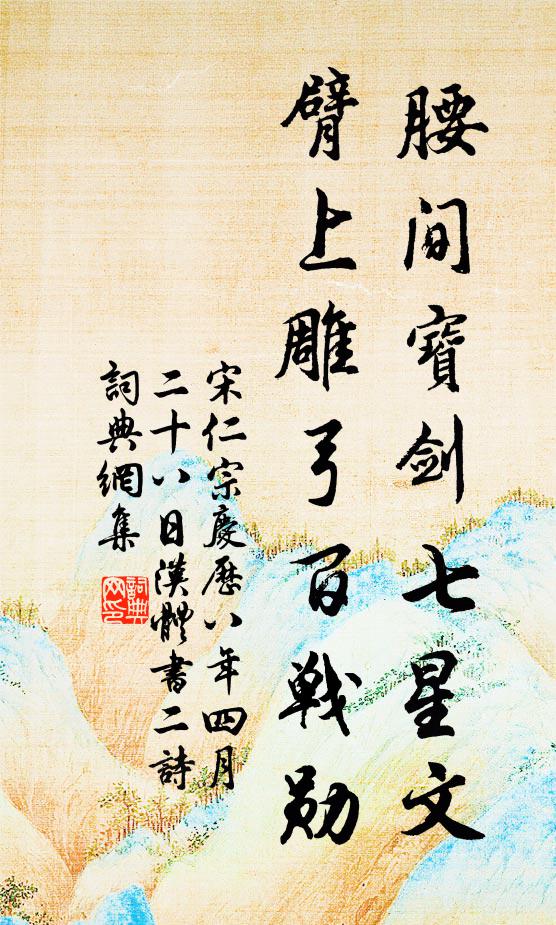 腰间寶劍七星文
臂上雕弓百戦勋
宋仁宗慶歷八年四月
二十八日漢體書二詩
詞典網集